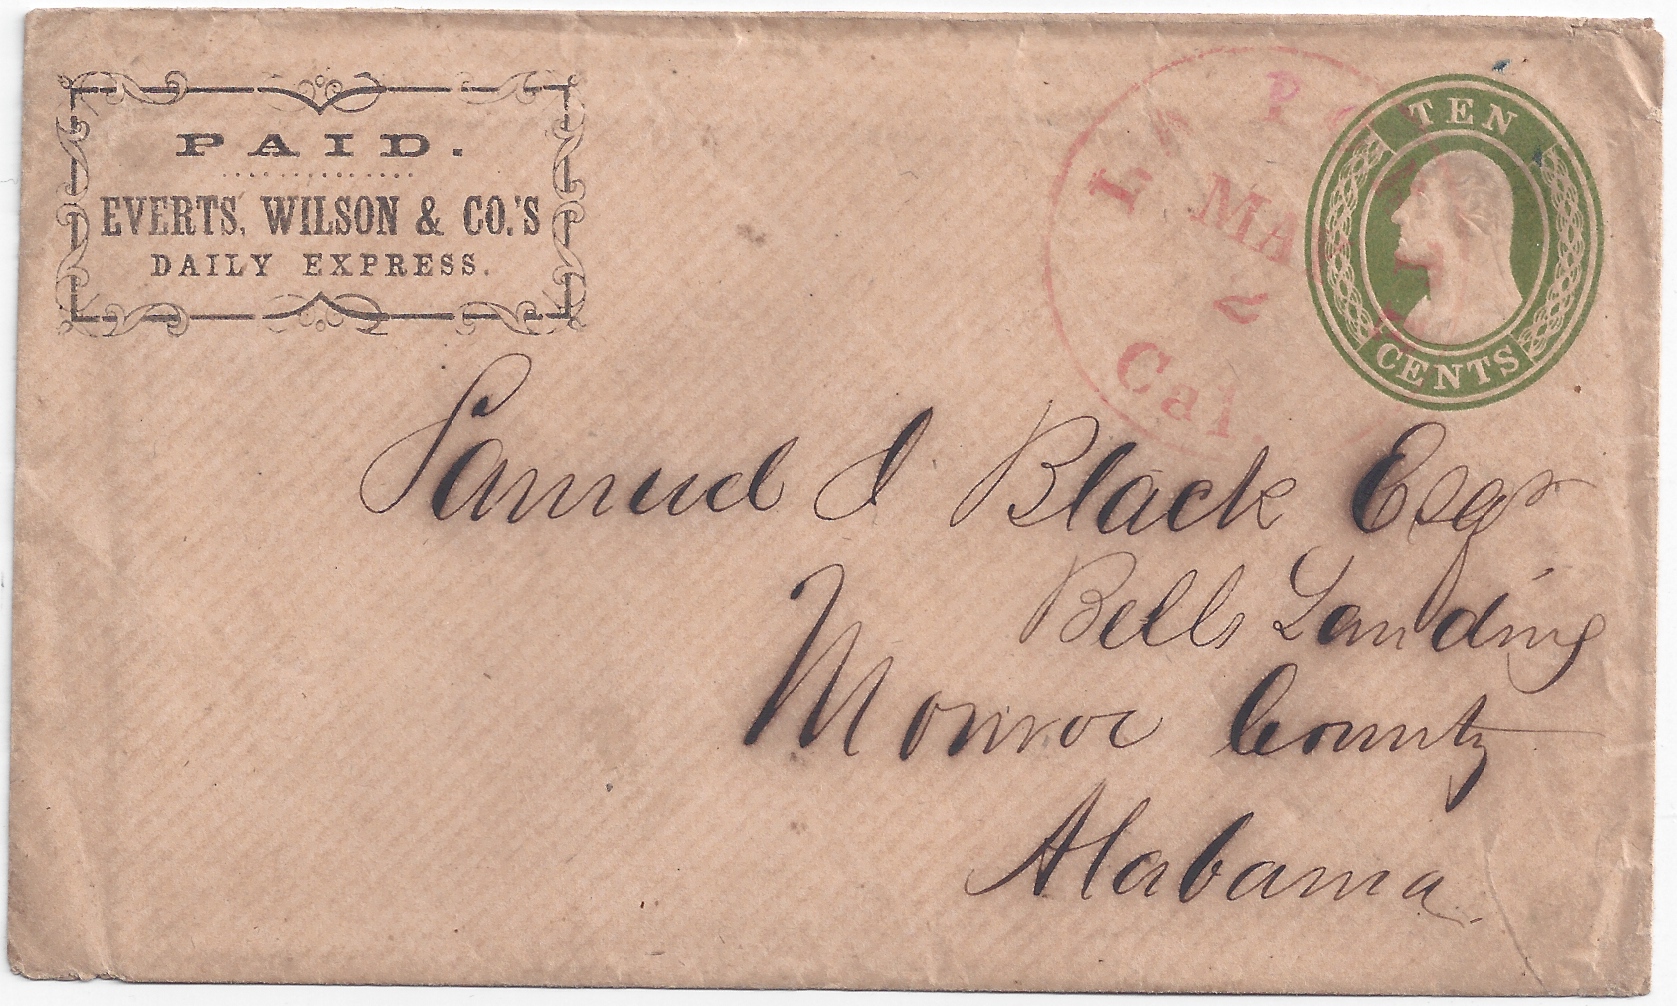 PAID.
EVERTS, WILSON & CO.'S
DAILY EXPRESS.
TEN
CENTS
La Po
MA
2
Cal.
Samuel J Black Esqr
Bells Landing
Monroe County
Alabama